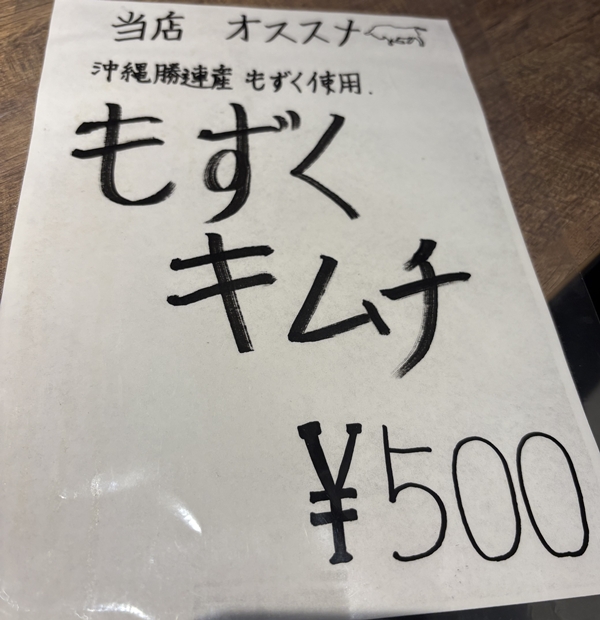 当店 オススナ
沖縄勝連産 もずく使用.
もずく
キムチ
¥500